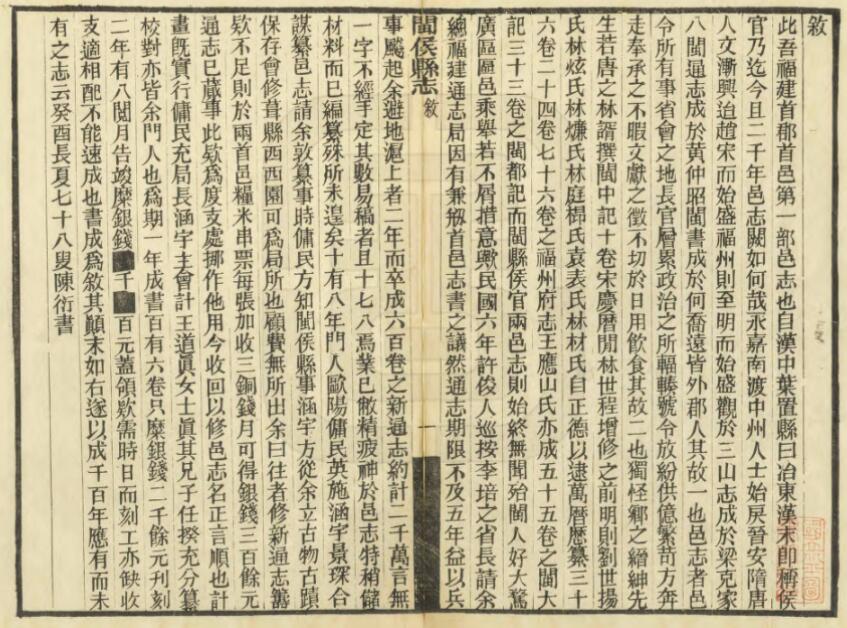 敘
此吾福建首郡首邑第一部邑志也自漢中葉置縣曰冶東漢末即稱侯
官乃迄今且二千年邑志闕如何哉永嘉南渡中州人士始戾晉安隋唐
人文漸興迨趙宋而始盛福州則至明而始盛觀於三山志成於梁克家
八閩通志成於黃仲昭閩書成於何喬遠皆外郡人其故一也邑志者邑
令所有事省會之地長官層累政治之所輻輳號令放紛供億繁苛方奔
走奉承之不暇文獻之徵不切於日用飲食其故二也獨怪鄉之縉紳先
生若唐之林諝撰閩中記十卷宋慶曆間林世程增修之前明則劉世揚
氏林炫氏林㷆氏林庭㭿氏袁表氏林材氏自正德以逮萬曆歷纂三十
六卷二十四卷七十六卷之福州府志王應山氏亦成五十五卷之閩大
記三十三卷之閩都記而閩縣侯官兩邑志則始終無聞殆閩人好大騖
廣區區邑乘舉若不屑措意歟民國六年許俊人巡按李培之省長請余
總福建通志局因有兼剏首邑志書之議然通志期限不及五年益以兵
閩侯縣志 敘 一
事飈起余避地滬上者二年而卒成六百卷之新通志約計二千萬言無
一字不經手定其數易稿者且十七八焉業已敝精疲神於邑志特稍儲
材料而已編纂殊所未遑矣十有八年門人歐陽傭民英施涵宇景琛合
謀纂邑志請余敦纂事時傭民方知閩侯縣事涵宇方從余立古物古蹟
保存會修葺縣西西園可為局所也顧費無所出余曰往者修新通志籌
欵不足則於兩首邑糧米串票每張加收三銅錢月可得銀錢三百餘元
通志已蕆事此欵為度支處挪作他用今收回以修邑志名正言順也計
畫既實行傭民充局長涵宇主會計王道眞女士眞其兄子任揆充分纂
校對亦皆余門人也為期一年成書百有六卷只糜銀錢二千餘元刋刻
二年有八閱月告竣糜銀錢千百元蓋領欵需時日而刻工亦缺收
支適相配不能速成也書成為敘其顛末如右遂以成千百年應有而未
有之志云癸酉長夏七十八叟陳衍書